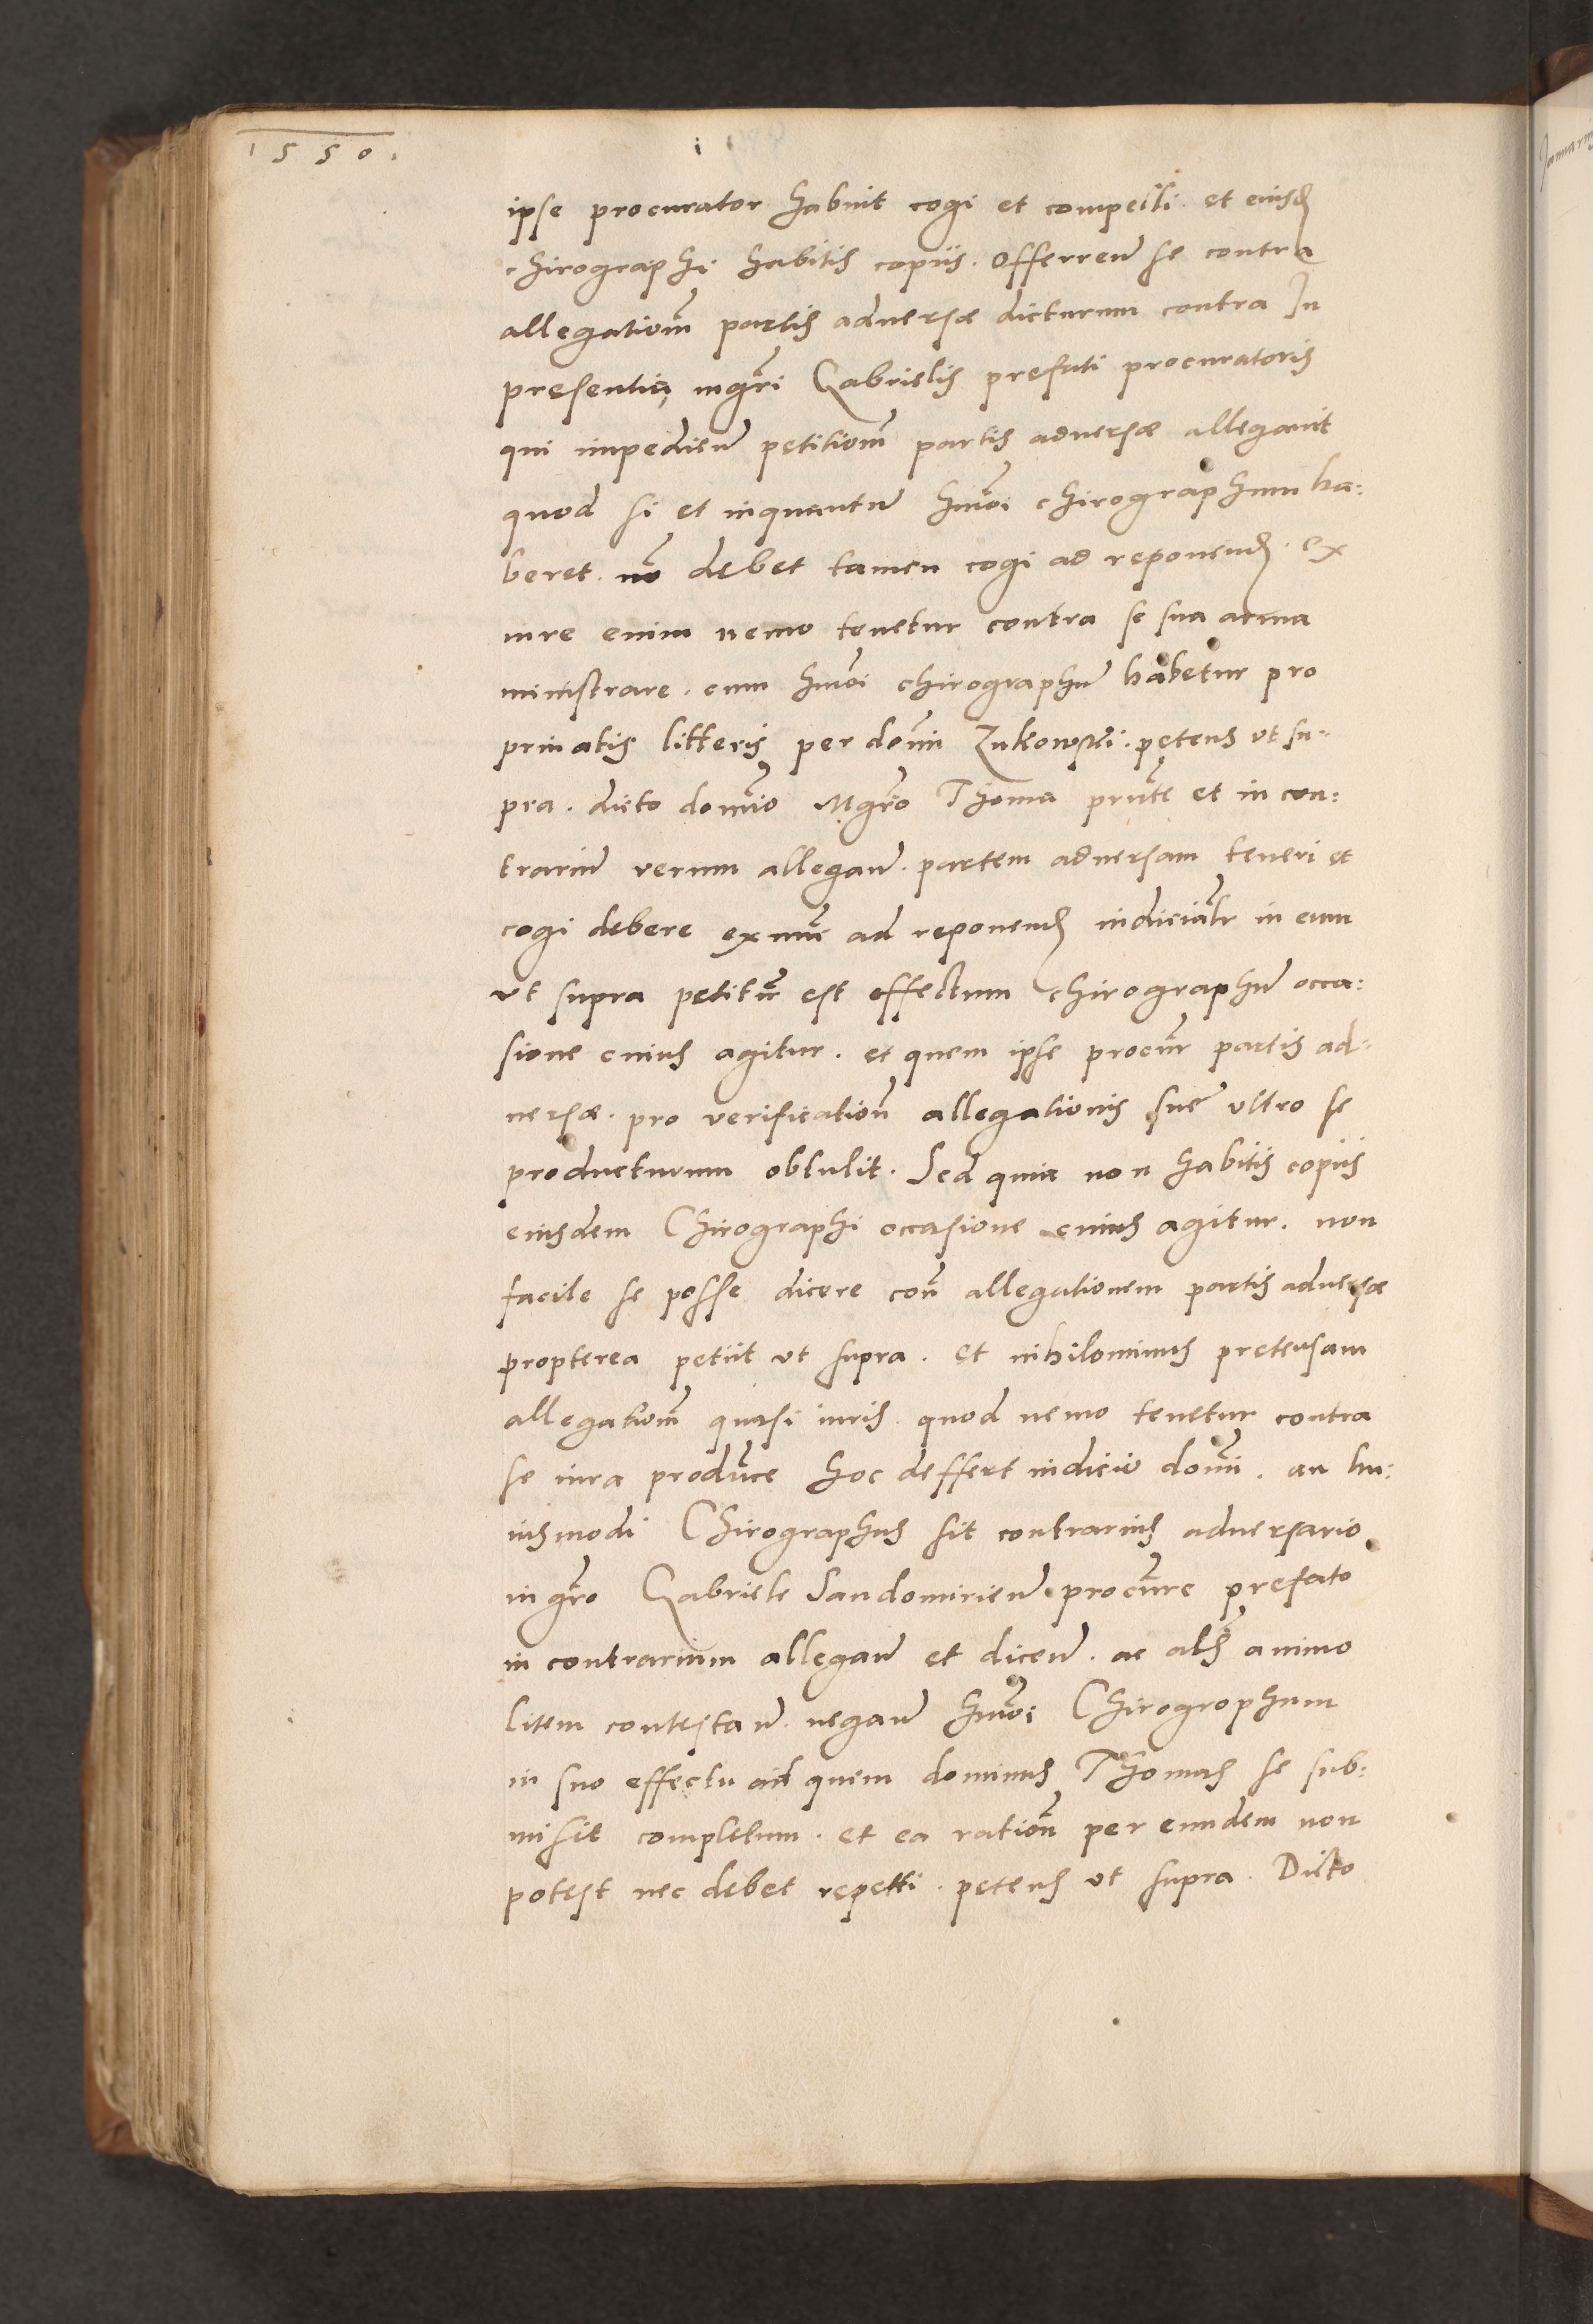 1550.
ipse procurator habuit cogi et compelli. et eiusd
chirographi habitis copiis. Offerren se contra
allegationm partis aduersæ dicturum contra In
presentia mgri Gabrielis prefati procuratoris
qui impedien petitionm partis aduersæ allegauit
quod si et inquantu hmoi chirographum ha:
beret. no debet tamen cogi ad reponend. ex
iure enim nemo tenetur contra se sua arma
ministrare. cum hmoi chirographu habetur pro
priuatis litteris per domin Zukowski. petens vt su-
pra. dicto domino Mgro Thoma prnte et in con:
trariu verum allegan. partem aduersam teneri et
cogi debere ex nunc ad reponend iudicialr in eum
vt supra petitu est effectum chirographu occa:
sione cuius agitur. et quem ipse procur partis ad-
uersæ. pro verification allegationis sue vltro se
producturum obtulit. Sed quia non habitis copiis
eiusdem Chirographi occasione cuius agitur. non
facile se posse dicere con allegationem partis aduersæ
propterea petiit vt supra. et nihilominus pretensam
allegationm quasi iuris quod nemo tenetur contra
se iura produce hoc deffert iudicio domi. an hu:
iusmodi Chirographus sit contrarius aduersario
mgro Gabriele Sandomirien procure prefato
in contrarium allegan et dicen. ac als animo
litem contestan. negan hmoi Chirogrophum
in suo effectu ad quem dominus Thomas se sub:
misit completum. et ea ration per eundem non
potest nec debet repetti. petens vt supra. Dicto
Januarii